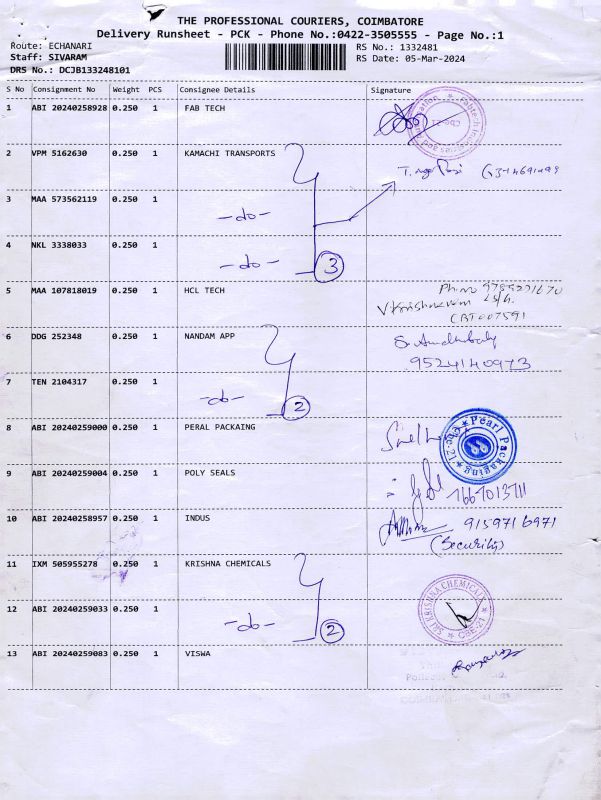 THE PROFESSIONAL COURIERS, COIMBATORE
Delivery Runsheet - PCK - Phone No.:0422-3505555 - Page No.:1
Route: ECHANARI
RS No.: 1332481
Staff: SIVARAM
RS Date: 05-Mar-2024
DRS No.: DCJB133248101
S No Consignment No Weight PCS Consignee Details Signature
1 ABI 20240258928 0.250 1 FAB TECH
2 VPM 5162630 0.250 1 KAMACHI TRANSPORTS
3 MAA 573562119 0.250 1 -do-
4 NKL 3338033 0.250 1 -do- 3
5 MAA 107818019 0.250 1 HCL TECH
CBT007591
6 DDG 252348 0.250 1 NANDAM APP
9524140973
7 TEN 2104317 0.250 1 -do- 2
8 ABI 20240259000 0.250 1 PERAL PACKAING
Pearl Packaging
9 ABI 20240259004 0.250 1 POLY SEALS
10 ABI 20240258957 0.250 1 INDUS
9159716971
(Security)
11 IXM 505955278 0.250 1 KRISHNA CHEMICALS
KRISHNA CHEMICALS
CBE-21
12 ABI 20240259033 0.250 1 -do- 2
13 ABI 20240259083 0.250 1 VISWA